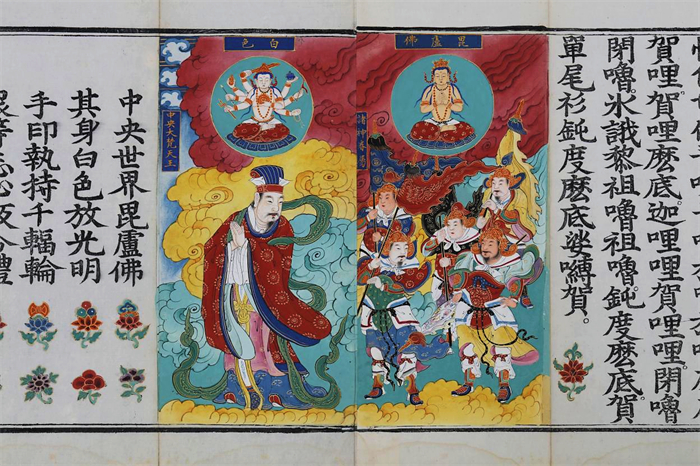 賀哩賀哩麽底。迦哩哩賀哩哩閉嚕
閉嚕。氷誐黎祖嚕祖嚕。鈍度麽底賀
單尾衫鈍度麽底娑嚩賀。
毘盧佛
白色
中央大梵天王
中央世界毘盧佛
其身白色放光明
手印執持千輻輪